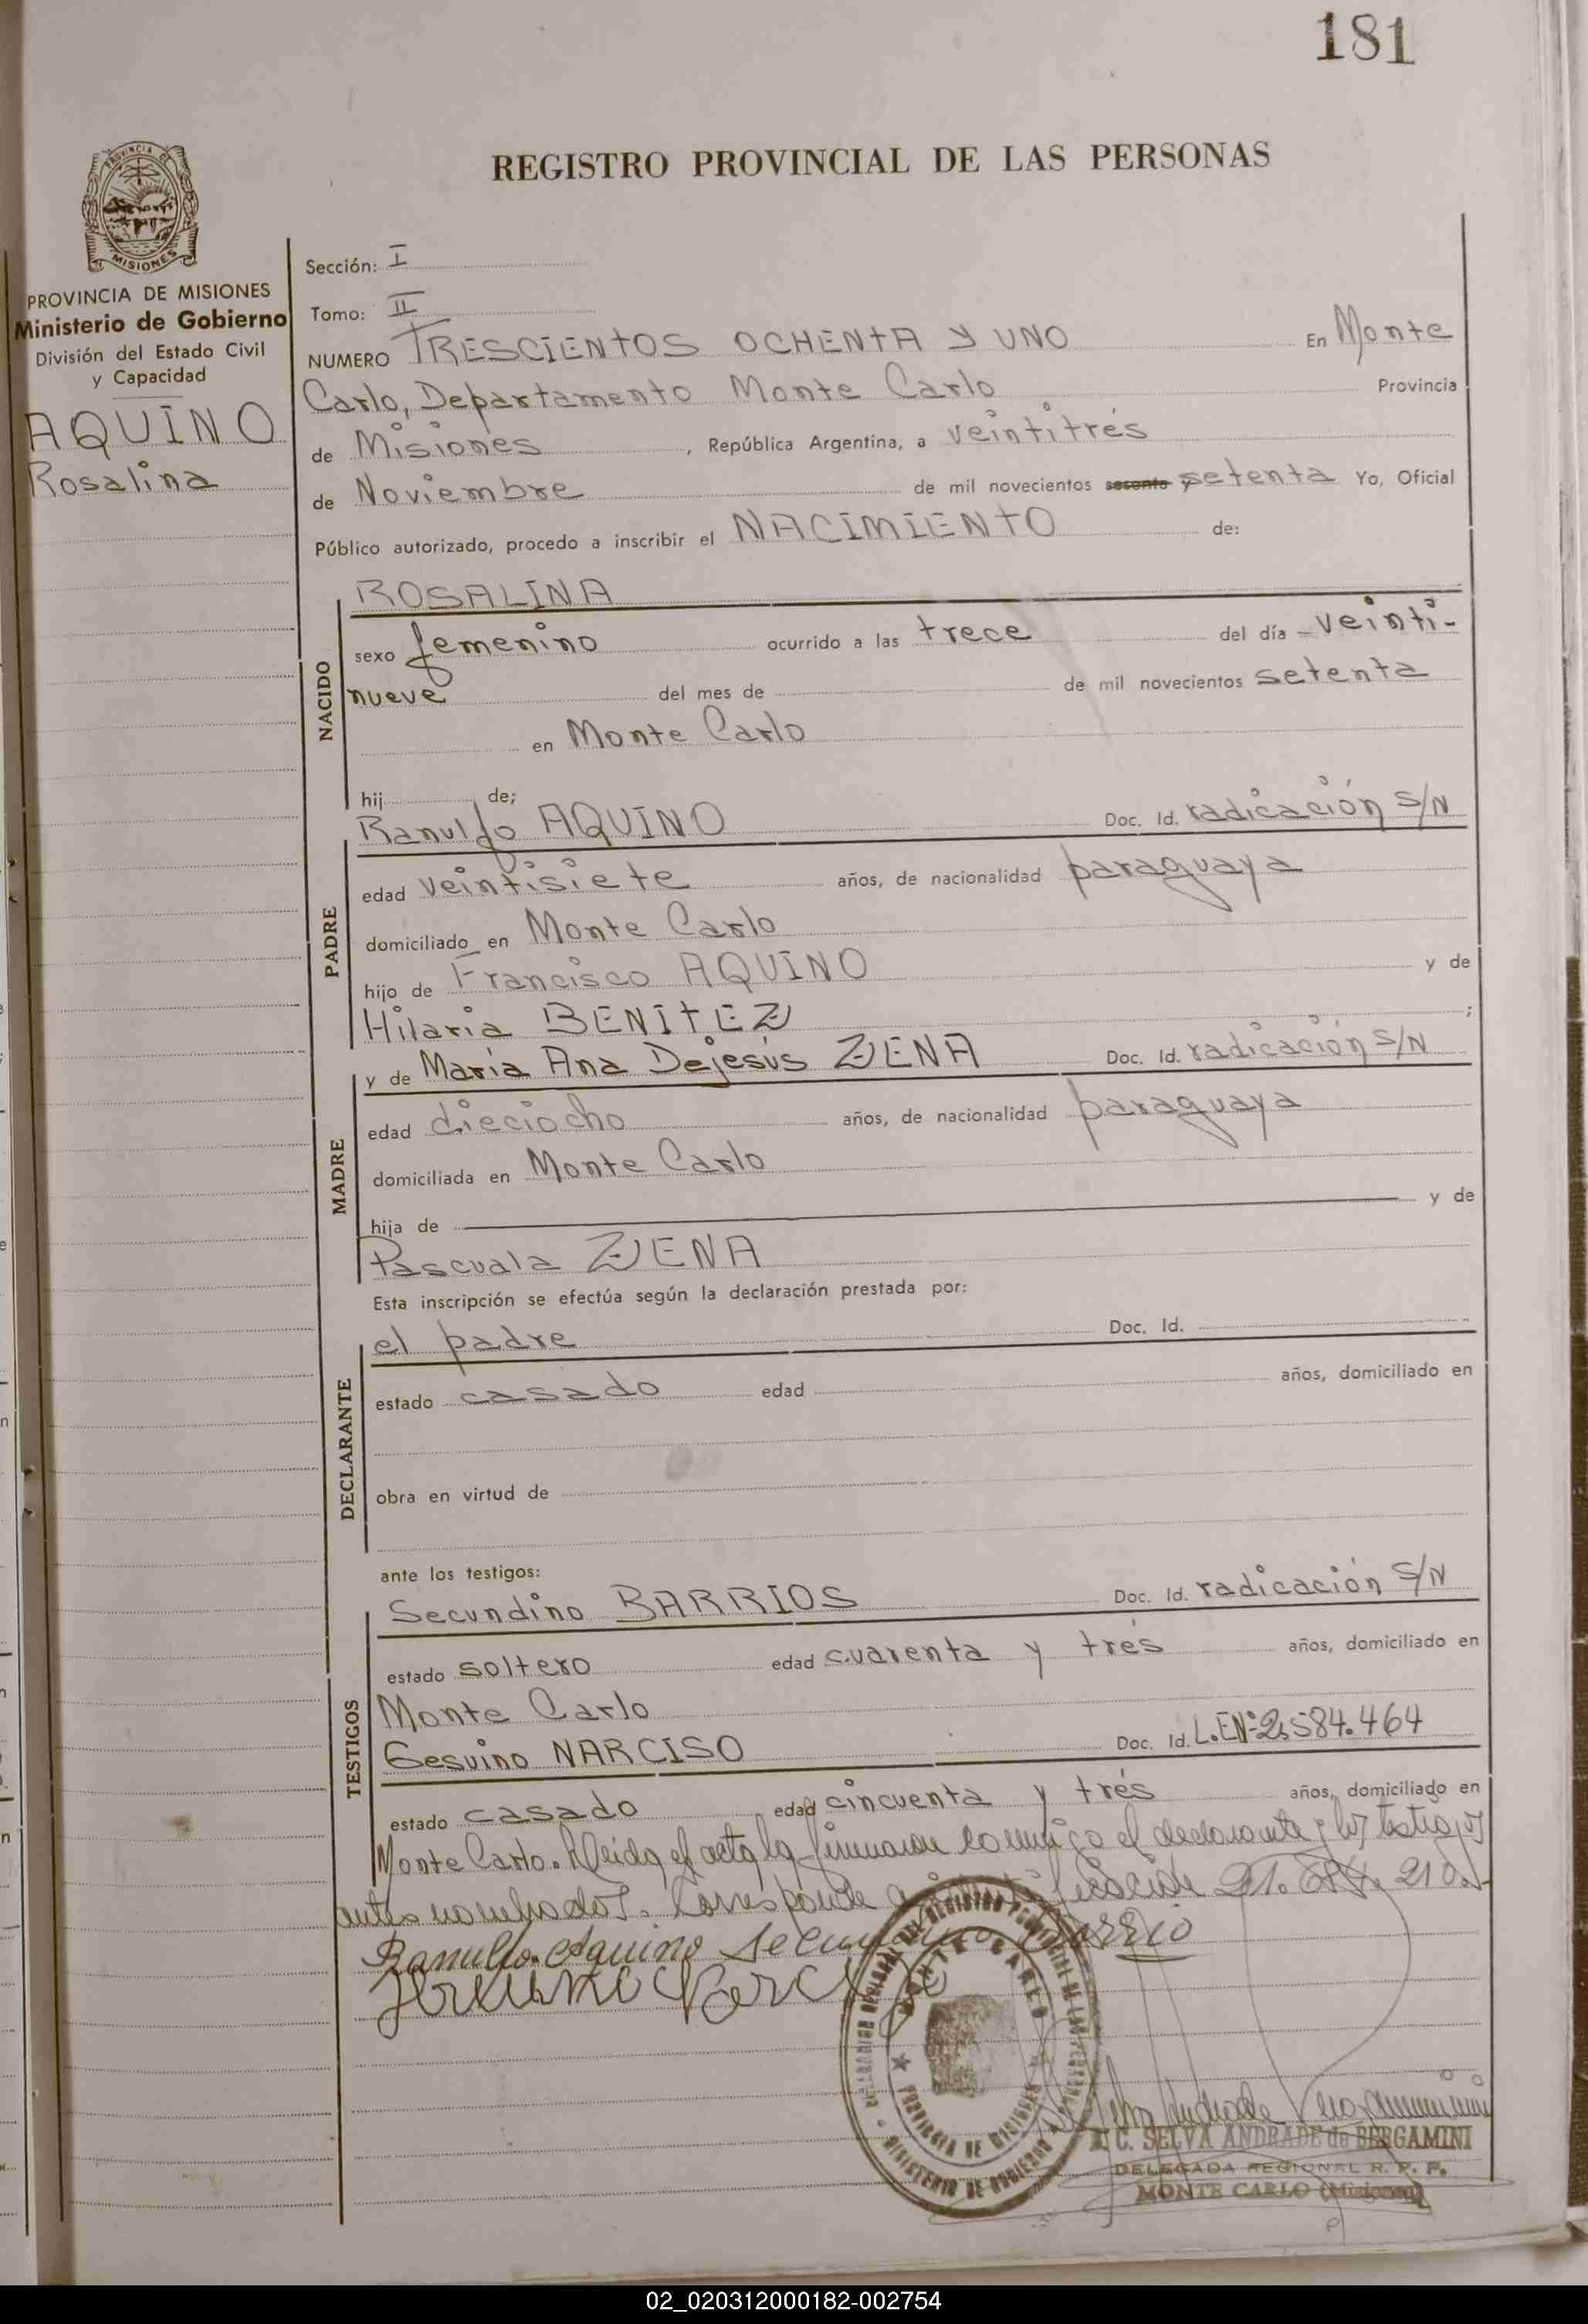 181
REGISTRO PROVINCIAL DE LAS PERSONAS
PROVINCIA DE MISIONES
Ministerio de Gobierno
División del Estado Civil
y Capacidad
AQUINO
Rosalina
Sección: I
Tomo: II
NUMERO TRESCIENTOS OCHENTA Y UNO En Monte
Carlo, Departamento Monte Carlo Provincia
de Misiones, República Argentina, a veintitrés
de Noviembre de mil novecientos sesenta y setenta Yo, Oficial
Público autorizado, procedo a inscribir el NACIMIENTO de:
NACIDO
ROSALINA
sexo femenino ocurrido a las trece del día veinti-
nueve del mes de de mil novecientos setenta
en Monte Carlo
hij de;
PADRE
Ranulfo AQUINO Doc. Id. radicación S/N
edad veintisiete años, de nacionalidad paraguaya
domiciliado en Monte Carlo
hijo de Francisco AQUINO y de
Hilaria BENITEZ ;
MADRE
y de María Ana Dejesús ZENA Doc. Id. radicación S/N
edad dieciocho años, de nacionalidad paraguaya
domiciliada en Monte Carlo
hija de y de
Pascuala ZENA
Esta inscripción se efectúa según la declaración prestada por:
DECLARANTE
el padre Doc. Id.
estado casado edad años, domiciliado en
obra en virtud de
ante los testigos:
TESTIGOS
Secundino BARRIOS Doc. Id. radicación S/N
estado soltero edad cuarenta y trés años, domiciliado en
Monte Carlo
Gesuino NARCISO Doc. Id. L.E.Nº 2.584.464
estado casado edad cincuenta y trés años, domiciliado en
Monte Carlo. Leída el acta la firmaron conmigo el declarante y los testigos
antes nombrados. Corresponde
Ranulfo Aquino Secundino Barrio
C. SELVA ANDRADE de BERGAMINI
DELEGADA REGIONAL R. P. P.
MONTE CARLO (Misiones)
02_020312000182-002754